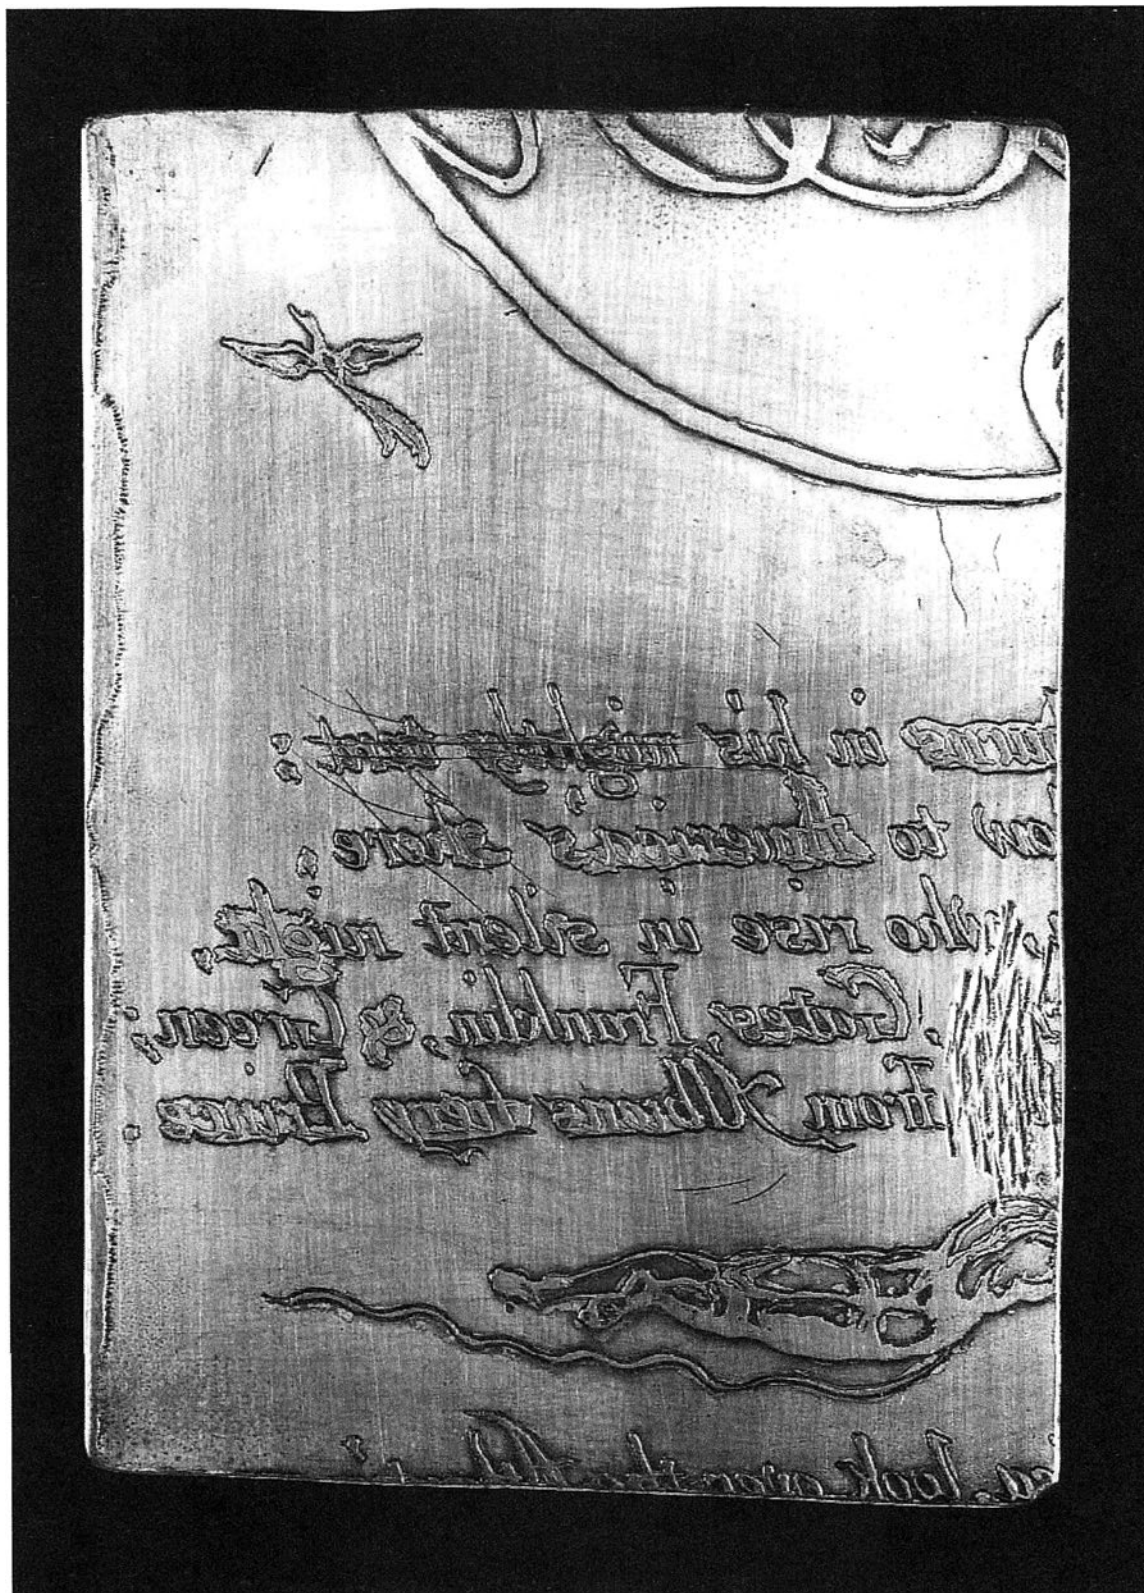 burns in his nightly tent :
ow to Americas shore;
who rise in silent night,
Gates, Franklin, & Green;
From Albions fiery Prince.
look over the